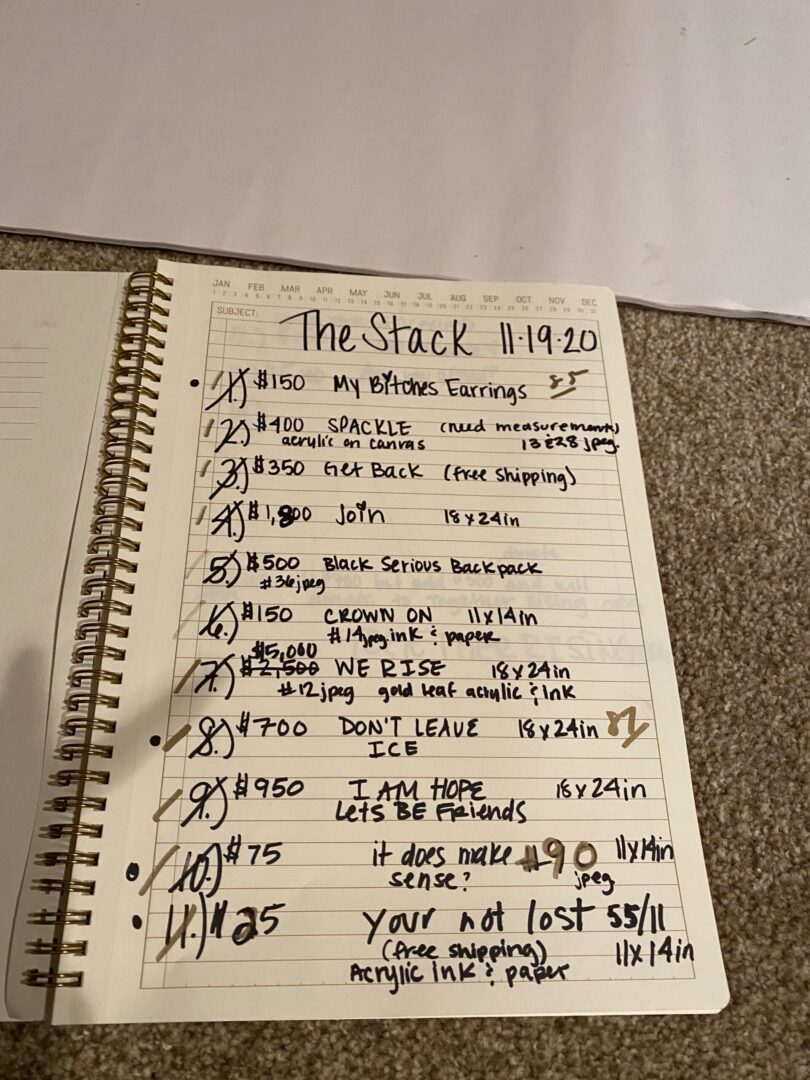 JAN FEB MAR APR MAY JUN JUL AUG SEP OCT NOV DEC
1 2 3 4 5 6 7 8 9 10 11 12 13 14 15 16 17 18 19 20 21 22 23 24 25 26 27 28 29 30 31
SUBJECT:
The Stack 11·19·20
1.) $150 My Bitches Earrings 85
2.) $400 SPACKLE (need measurements)
acrylic on canvas 13 & 28 jpeg.
3.) $350 Get Back (free shipping)
4.) $1,800 Join 18x24in
5.) $500 Black Serious Backpack
#36jpeg
6.) $150 CROWN ON 11x14in
#14jpeg ink & paper
$5,000
7.) $2,500 WE RISE 18x24in
#12jpeg gold leaf acrylic & ink
8.) $700 DON'T LEAVE 18x24in 87
ICE
9.) $950 I AM HOPE 18x24in
Lets BE Friends
10.) $75 it does make #90 11x14in
sense? jpeg
11.) $25 your not lost 55/11
(free shipping) 11x14in
Acrylic ink & paper